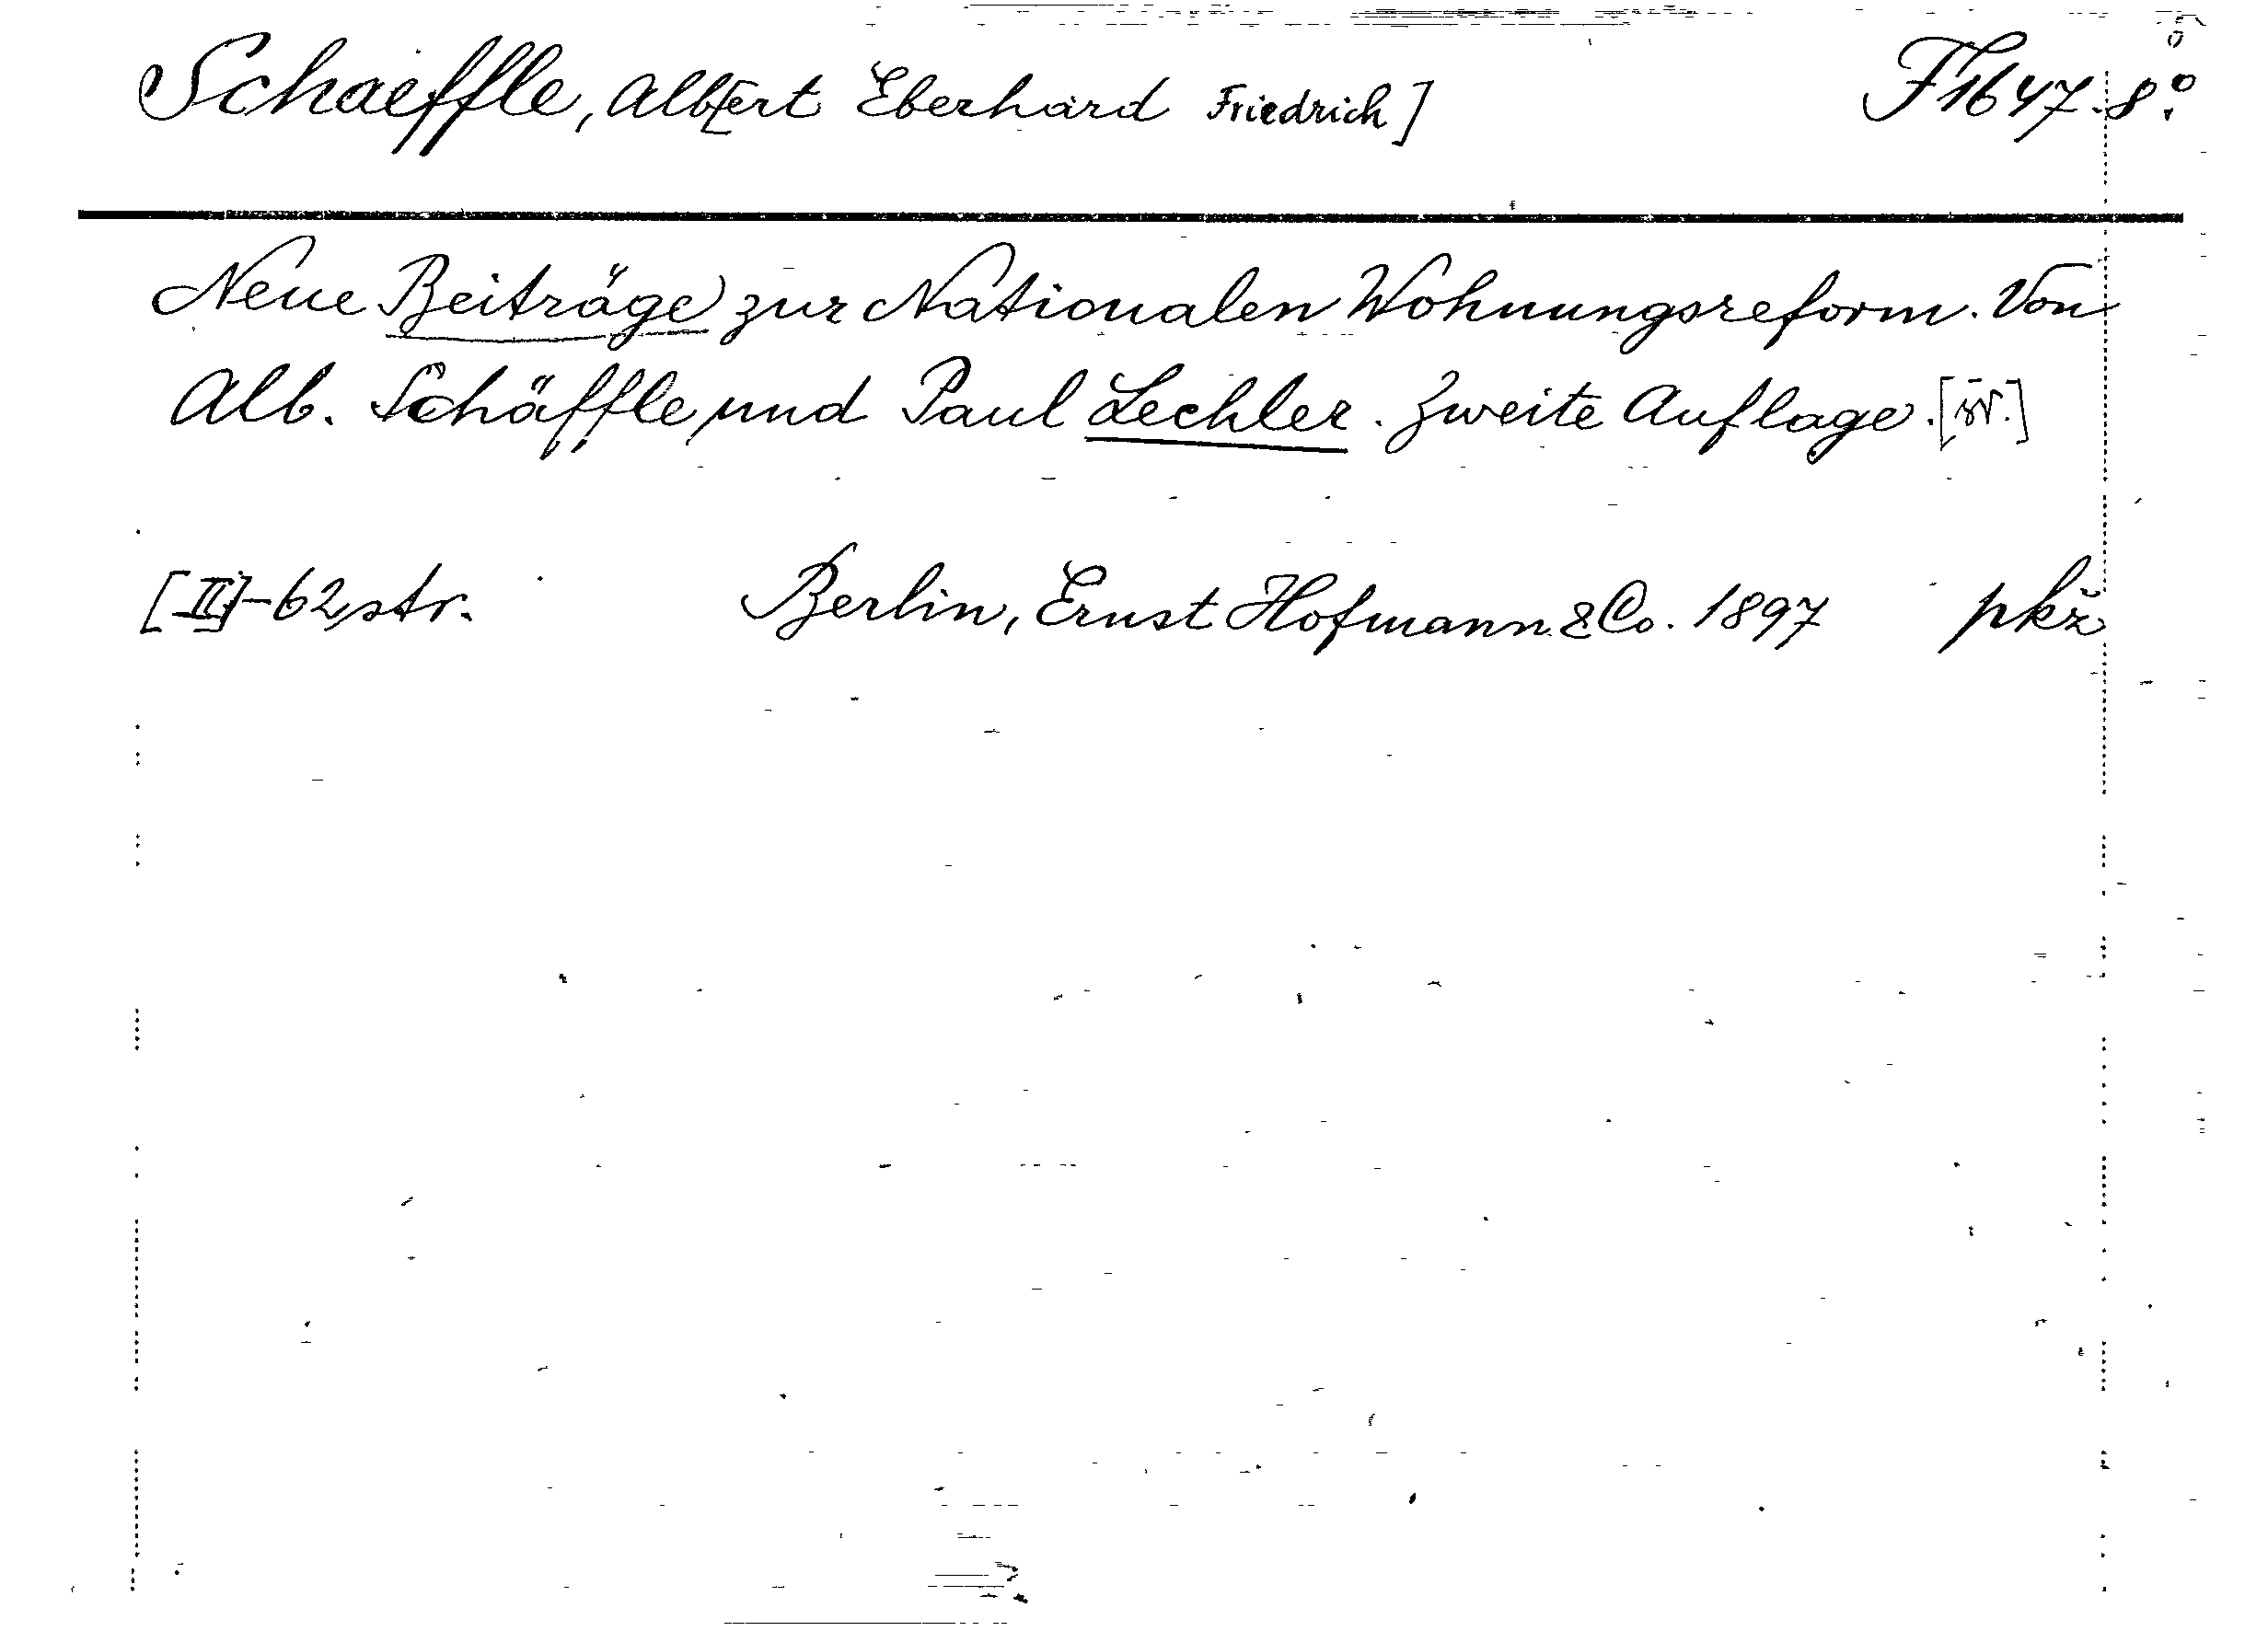 Schaeffle, Alb[ert Eberhard Friedrich] F 1647.8°.
Neue Beiträge zur Nationalen Wohnungsreform. Von
Alb. Schäffle und Paul Lechler. Zweite Auflage.
[II]-62 str. Berlin, Ernst Hofmann & Co. 1897 pkž